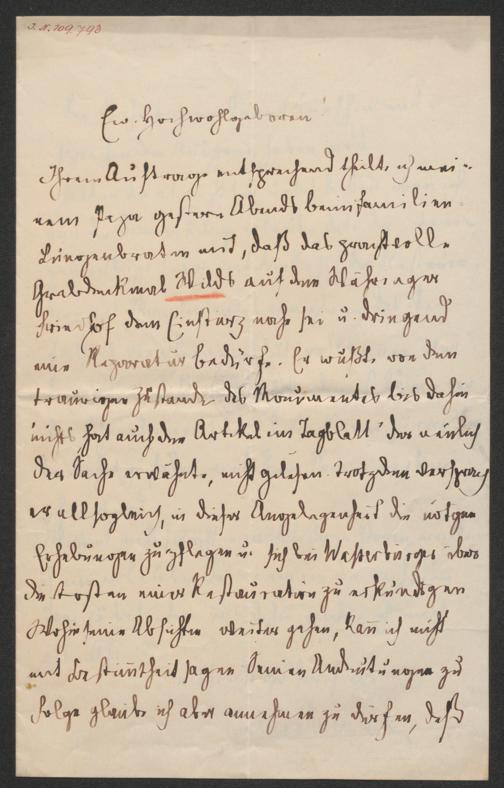 J.N. 109.798
Ew. Hochwohlgeboren!
Ihrem Auftrage entsprechend theilte ich mei-
nem Papa gestern Abends beim familien
Lungenbraten mit, daß das prachtvolle
Grabdenkmal Wilds auf dem Währinger
Friedhof dem Einsturz nahe sei u. dringend
eine Reparatur bedürfe. Er wußte von dem
traurigen Zustande des Monumentes bis dahin
nichts, hat auch den Artikel im Tagblatt der neulich
der Sache erwähnte, nicht gelesen. Trotzdem versprach
er allsogleich, in dieser Angelegenheit die nötigen
Erhebungen zu pflegen u. sich bei Wasserburger über
die Kosten einer Restauration zu erkundigen
Wohin seine Absichten weiter gehen, kann ich nicht
mit Bestimmtheit sagen Seinen Andeutungen zu
folge glaube ich aber annehmen zu dürfen, daß